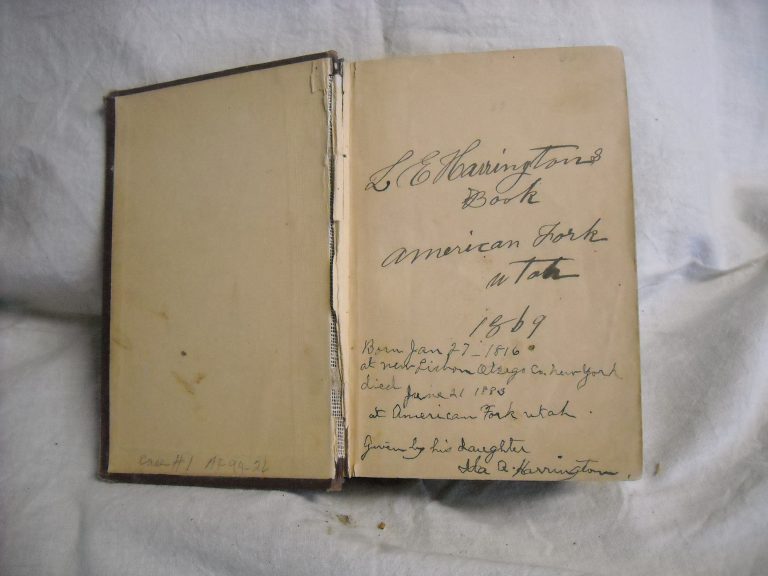 L E Harringtons
Book
American Fork
Utah
1869
Born Jan 27 - 1816
at New Lisbon Otsego Co. New York
died June 21 1883
at American Fork Utah.
Given by his Daughter
Ida A. Harrington.
Case #1